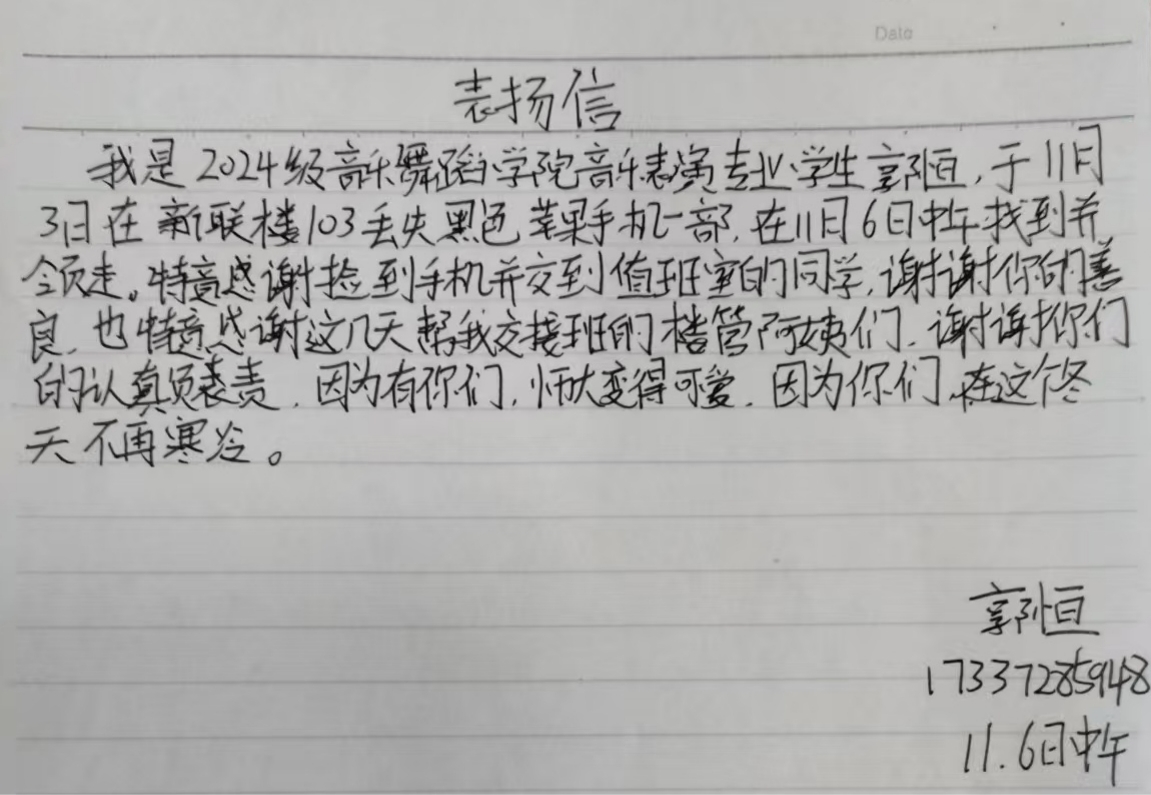 Date
表扬信
我是2024级音乐舞蹈学院音乐表演专业学生郭恒,于11月
3日在新联楼103丢失黑色苹果手机一部,在11月6日中午找到并
领走。特意感谢捡到手机并交到值班室的同学,谢谢你的善
良,也特意感谢这几天帮我交接班的楼管阿姨们,谢谢你们
的认真负责,因为有你们,师大变得可爱,因为你们,在这个冬
天不再寒冷。
郭恒
17337285948
11.6日中午